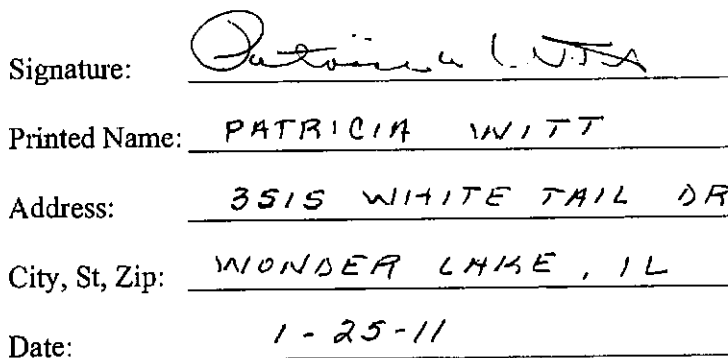 Signature: Patricia Witt
Printed Name: PATRICIA WITT
Address: 3515 WHITE TAIL DR
City, St, Zip: WONDER LAKE, IL
Date: 1-25-11